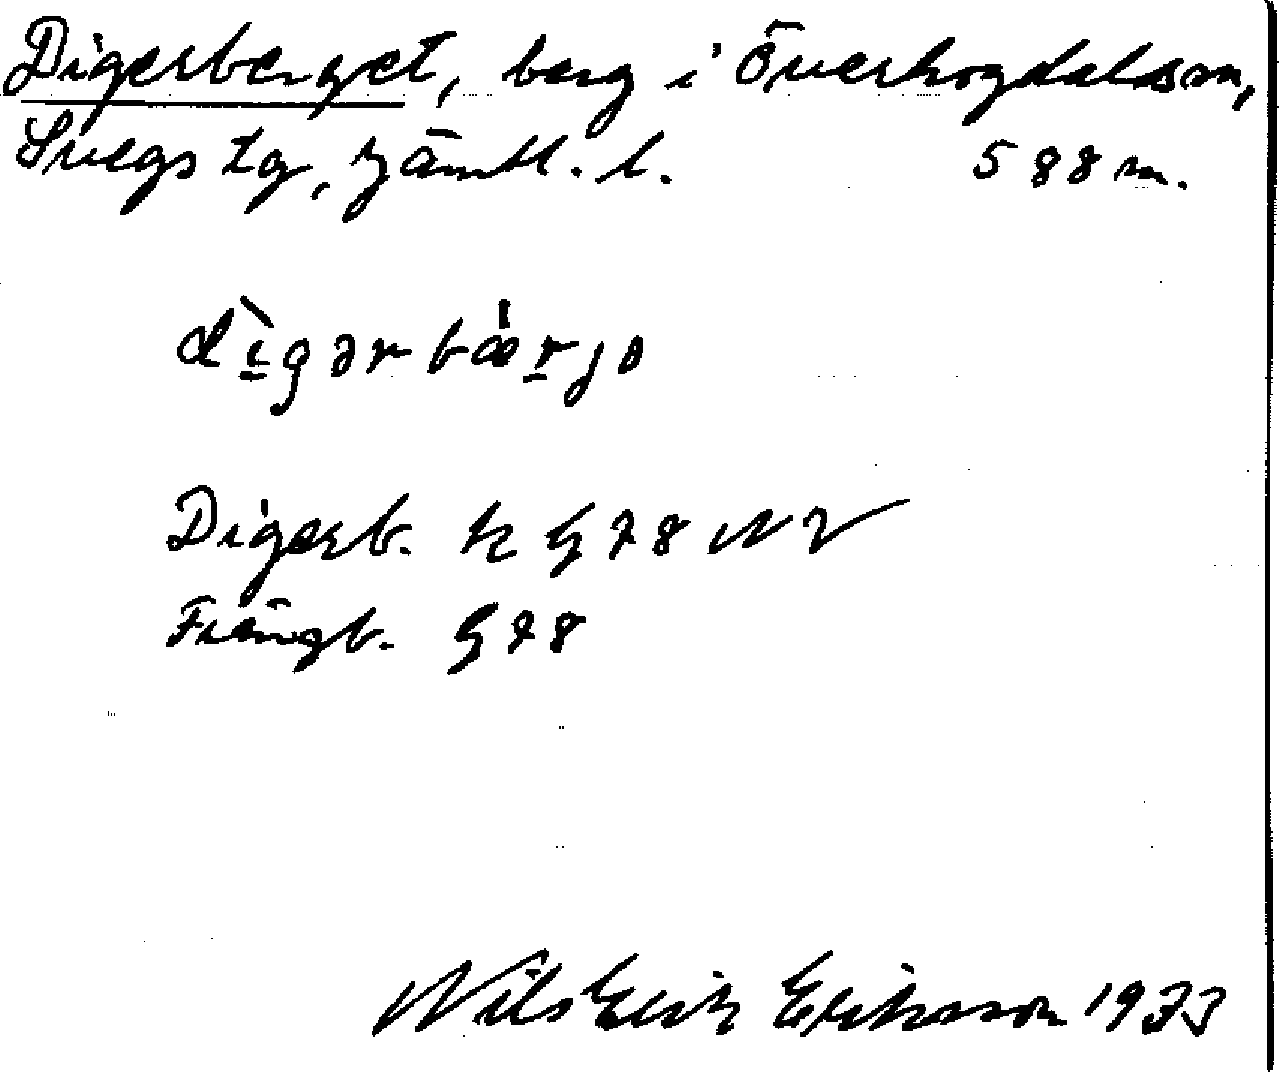 Digerberget, berg i Överhogdals sn,
Svegs tg, Jämtl. l. 588 m.
dìgərbǽrjo
Digerb. k G 78 NV
Frängb. G 78
Nils Erik Eriksson 1933